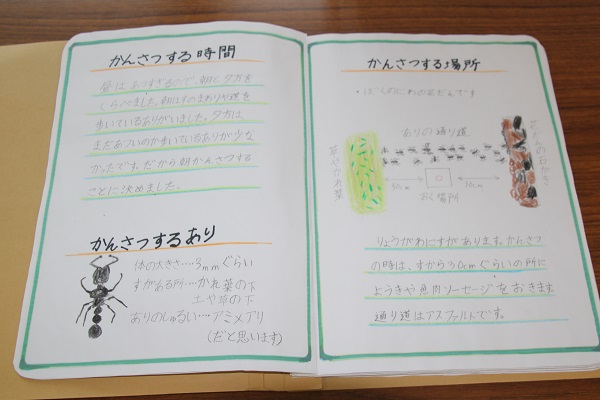 かんさつする時間
昼はあつすぎるので、朝と夕方を
くらべました。朝はすのまわりや道を
歩いているありがいました。夕方は、
まだあついのか歩いているありが少な
かったです。だから朝かんさつする
ことに決めました。
かんさつするあり
体の大きさ…3mmぐらい
すがある所…かれ葉の下
土や草の下
ありのしゅるい…アミメアリ
(だと思います)
かんさつする場所
・ぼくのにわの花だんです
ありの通り道
草やかれ葉
30cm
30cm
おく場所
りょうがわにすがあります。かんさつ
の時は、すから30cmぐらいの所に
ようきや魚肉ソーセージをおきます
通り道はアスファルトです。